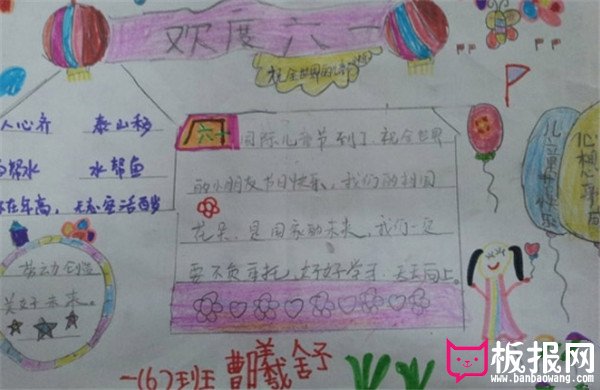 欢度六一
祝全世界的儿童
人心齐 泰山移
帮水 水帮鱼
不在年高，无志空活百岁
六一 国际儿童节到了，祝全世界
的小朋友节日快乐，我们的祖国
花朵，是国家的未来，我们一定
要不负重托，好好学习，天天向上。
劳动创造
美好未来。
儿童节快乐
心想事成
一(6)班 曹曦舒
板报网
www.banbaowang.com